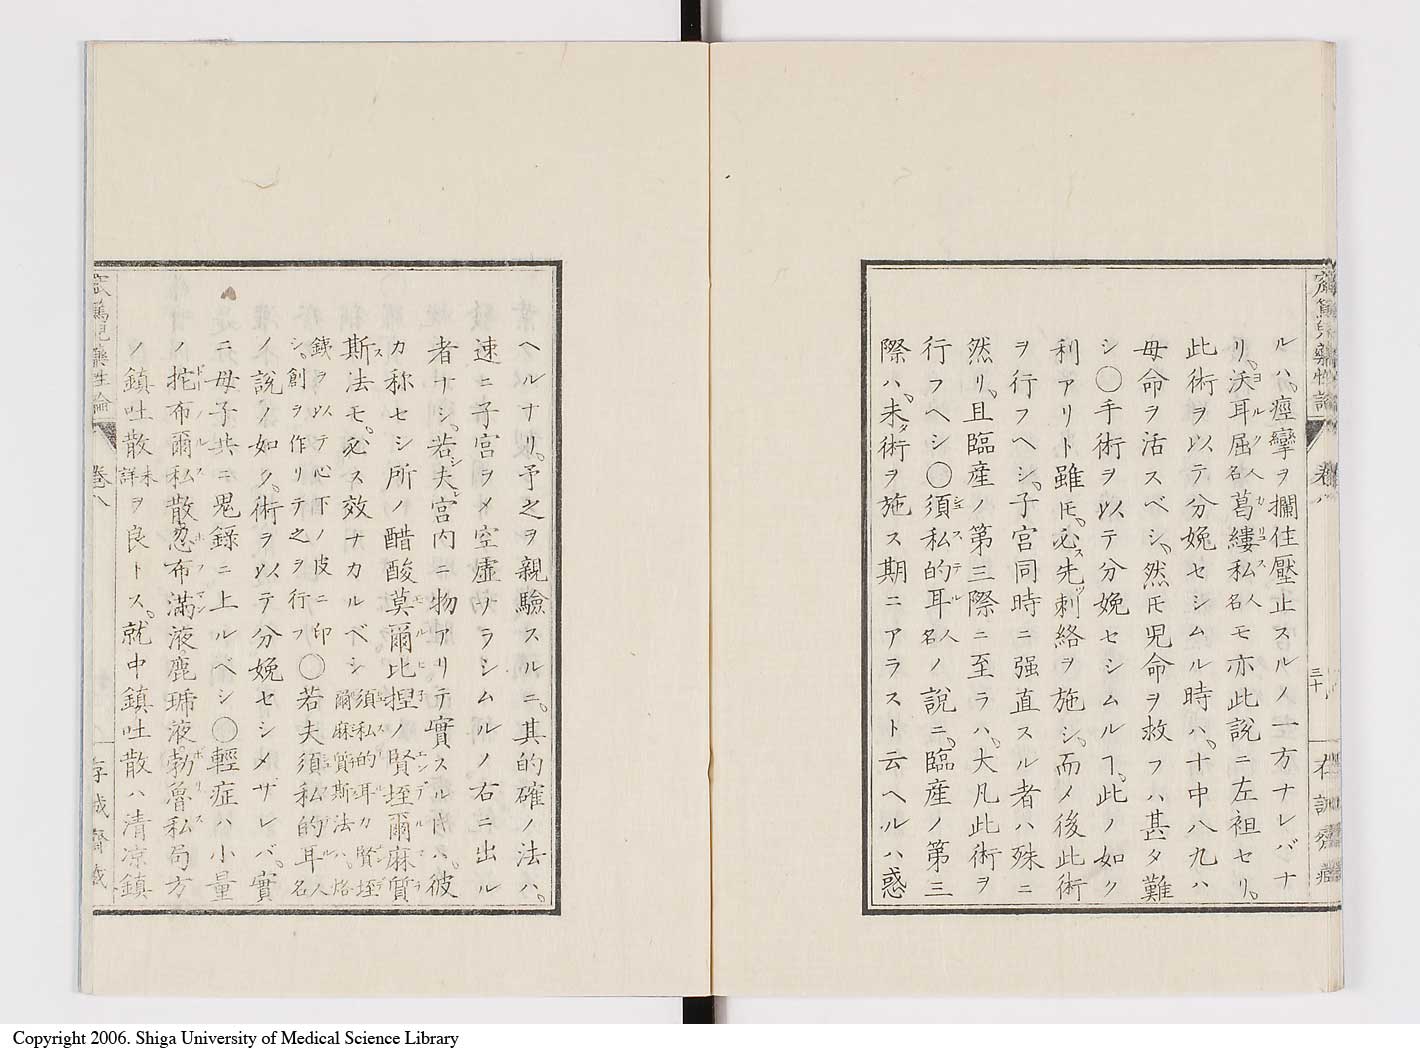 ルハ、痙攣ヲ攔住壓止スルノ一方ナレバナ
リ、沃耳屈人名葛縷私人名モ亦此説ニ左袒セリ、
此術ヲ以テ分娩セシムル時ハ、十中八九ハ
母命ヲ活スベシ、然𪜈児命ヲ救フハ甚タ難
シ〇手術ヲ以テ分娩セシムルヿ、此ノ如ク
利アリト雖𪜈、必ス先ツ刺絡ヲ施シ、而メ後此術
ヲ行フヘシ、子宮同時ニ强直スル者ハ殊ニ
然リ、且臨産ノ第三際ニ至ラハ、大凡此術ヲ
行フヘシ〇須私的耳人名ノ説ニ、臨産ノ第三
際ハ、未タ術ヲ施ス期ニアラスト云ヘルハ惑
卷八
ヘルナリ、予之ヲ親驗スルニ、其的確ノ法ハ、
速ニ子宮ヲメ空虚ナラシムルノ右ニ出ル
者ナシ、若シ夫レ宮内ニ物アリテ實スル𪜈ハ、彼
カ称セシ所ノ醋酸莫爾比捏ノ賢垤爾麻質
斯法モ、必ス效ナカルベシ須私的耳カ賢垤爾麻質斯法ハ、烙
銕ヲ以テ心下ノ皮ニ印シ、創ヲ作リテ之ヲ行フ〇若夫須私的耳人名
ノ説ノ如ク、術ヲ以テ分娩セシメザレバ、實
ニ母子共ニ鬼錄ニ上ルベシ〇輕症ハ小量
ノ挖布爾私散忽布滿液鹿琥液勃魯私局方
ノ鎮吐散未詳ヲ良トス、就中鎮吐散ハ清凉鎮
窊篤児藥性論
卷八
存誠齋蔵
Copyright 2006. Shiga University of Medical Science Library